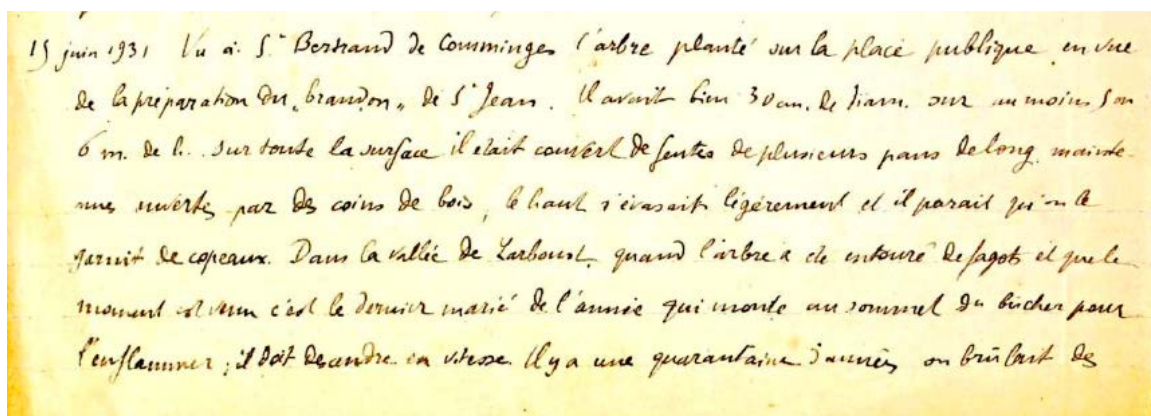 15 juin 1931 Vu à St Bertrand de Comminges l'arbre planté sur la place publique en vue
de la préparation du "brandon" de St Jean. Il avait bien 30 cm. de diam. sur au moins 5 ou
6 m. de h.. sur toute la surface il était couvert de fentes de plusieurs pans de long mainte-
nues ouvertes par des coins de bois, le haut s'évasait légèrement et il parait qu'on le
garnit de copeaux. Dans la vallée de Larboust, quand l'arbre a été entouré de fagots et que le
moment est venu c'est le dernier marié de l'année qui monte au sommet du bûcher pour
l'enflammer ; il doit descendre en vitesse. Il y a une quarantaine d'années on brûlait des